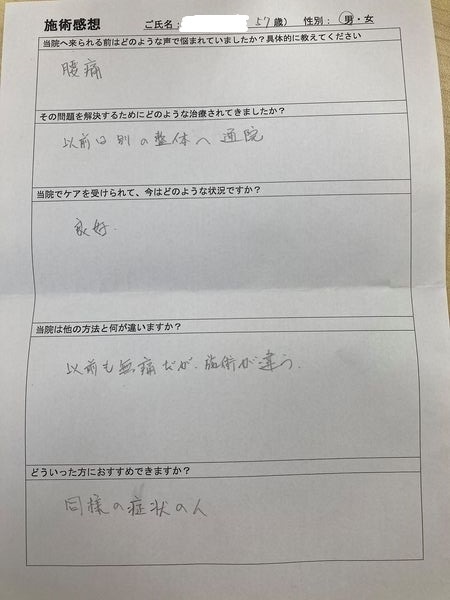 施術感想 ご氏名: 57歳) 性別: 男・女
当院へ来られる前はどのような声で悩まれていましたか?具体的に教えてください
腰痛
その問題を解決するためにどのような治療されてきましたか?
以前は別の整体へ通院
当院でケアを受けられて、今はどのような状況ですか?
良好.
当院は他の方法と何が違いますか?
以前も無痛だが、施術が違う.
どういった方におすすめできますか?
同様の症状の人